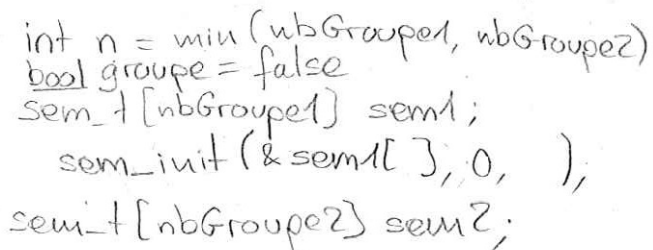 int n = min (nbGroupe1, nbGroupe2)
bool groupe = false
sem_t [nbGroupe1] sem1;
sem_init (& sem1[ ], 0,    );
sem_t [nbGroupe2] sem2;